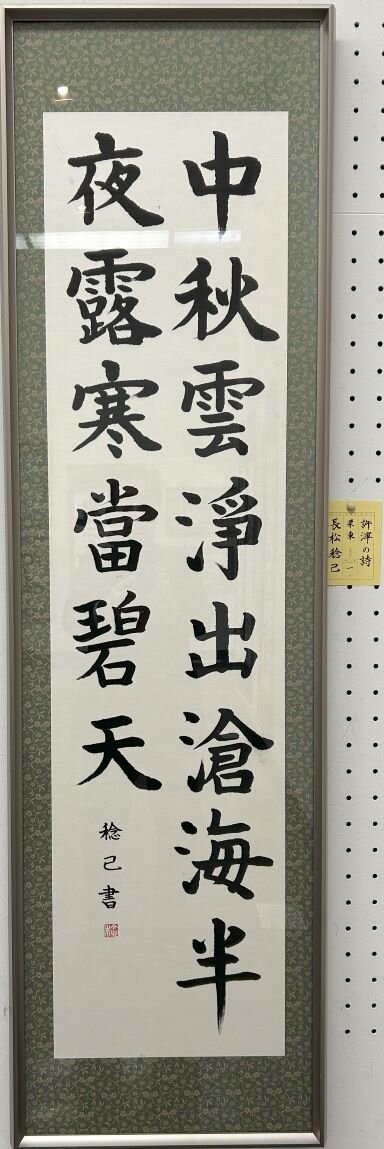 中秋雲淨出滄海半
夜露寒當碧天
稔己書
許渾の詩
栗東
長松稔己